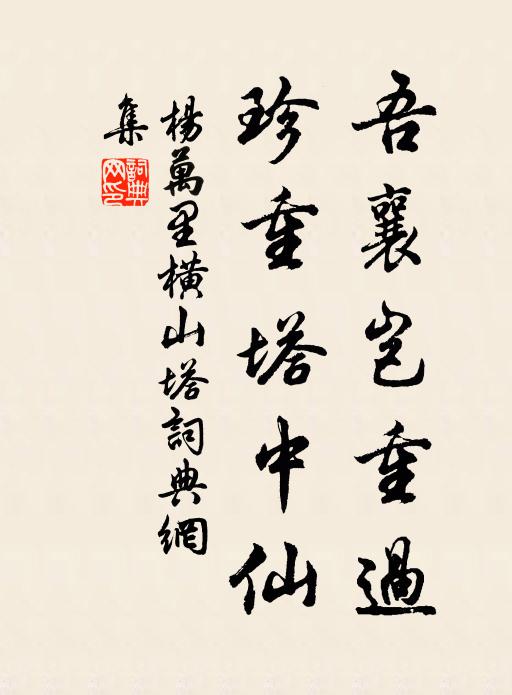 吾襄岂重過
珍重塔中仙
楊萬里橫山塔詞典網
集
詞典
网印